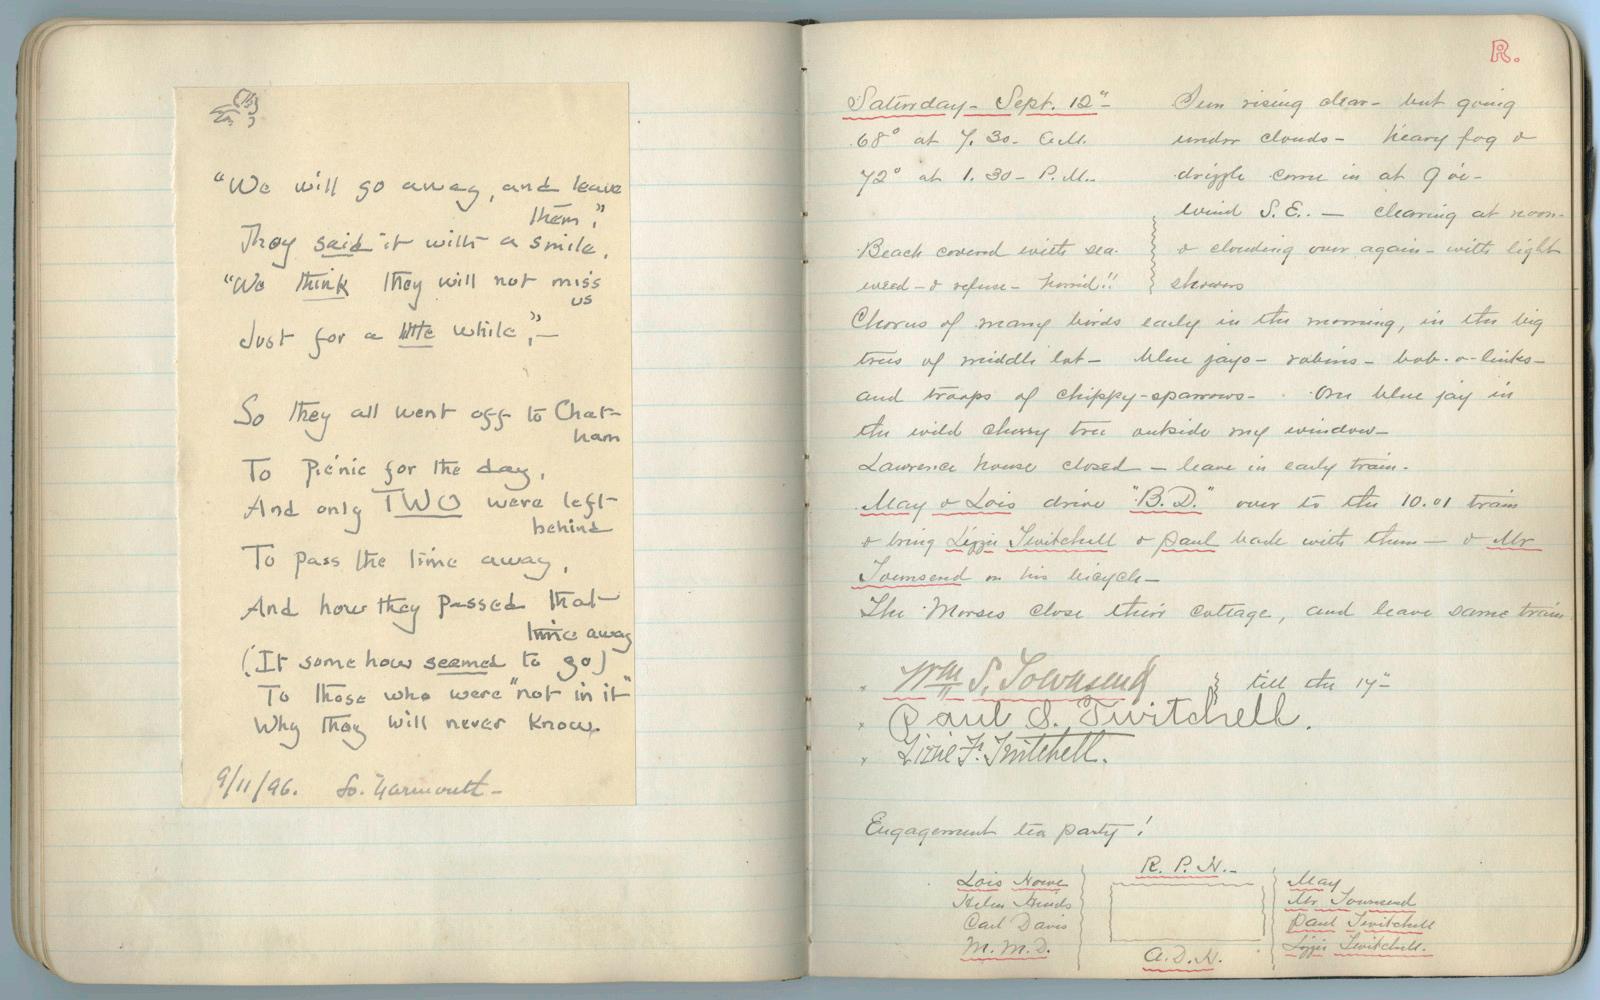 "We will go away, and leave
them,"
They said it with a smile,
"We think they will not miss
us
Just for a little while,"—
So they all went off to Chat-
ham
To Picnic for the day,
And only TWO were left
behind
To pass the time away,
And how they passed that
time away
(It somehow seemed to go)
To those who were "not in it"
Why they will never know.
9/11/96. So. Yarmouth—
R.
Saturday- Sept. 12"-
68° at 7.30- A.M.
72° at 1.30- P.M.-
Sun rising clear- but going
under clouds- heavy fog &
drizzle come in at 9
wind S.E.- clearing at noon-
& clouding over again- with light
showers
Beach covered with sea
weed- & refuse- horrid!!
Chorus of many birds early in the morning, in the big
trees of middle lot- blue jays- robins- bob-o-links-
and troops of chippy-sparrows- One blue jay in
the wild cherry tree outside my window-
Lawrence house closed- leave in early train.
May & Lois drive "B.D." over to the 10.01 train
& bring Lizzie Twitchell & Paul back with them- & Mr
Townsend on his bicycle-
The Morses close their cottage, and leave same train
Wm S. Townsend } till the 14"-
Paul S. Twitchell.
Lizzie F. Twitchell.
Engagement tea party!
R. P. N.-
Lois Howe
Helen Hinds
Carl Davis
M. M. D.
May
Mr Townsend
Paul Twitchell
Lizzie Twitchell.
A. D. N.